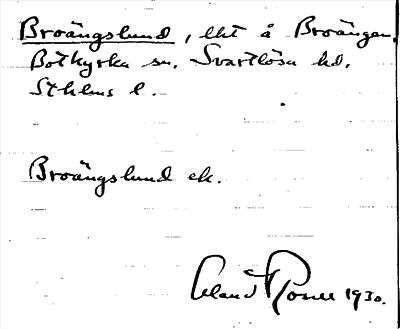 Broängslund, lht å Broängen.
Botkyrka sn. Svartlösa hd.
Sthlms l.
Broängslund ek.
1930.